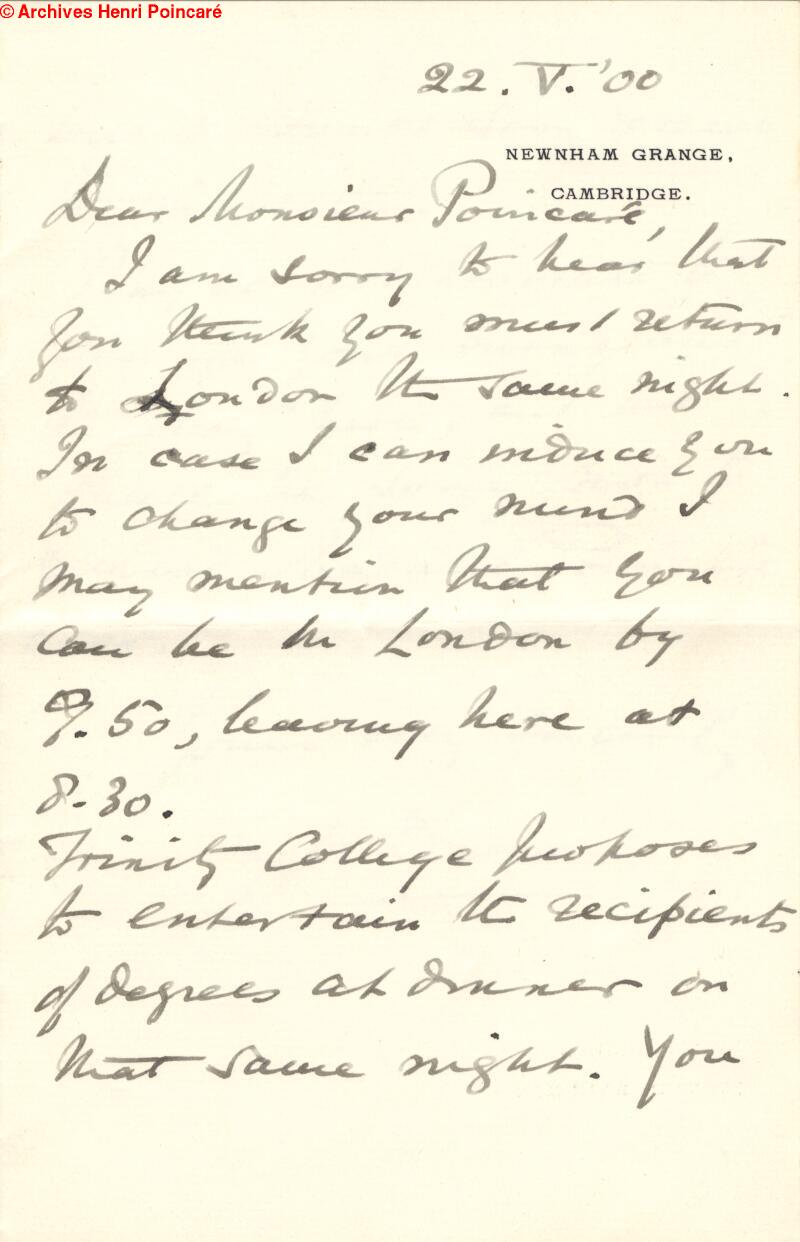 © Archives Henri Poincaré
22. V. '00
NEWNHAM GRANGE,
CAMBRIDGE.
Dear Monsieur Poincaré,
I am sorry to hear that
you think you must return
to London the same night.
In case I can induce you
to change your mind I
may mention that you
can be in London by
9.50, leaving here at
8.30.
Trinity College proposes
to entertain the recipients
of degrees at dinner on
that same night. You